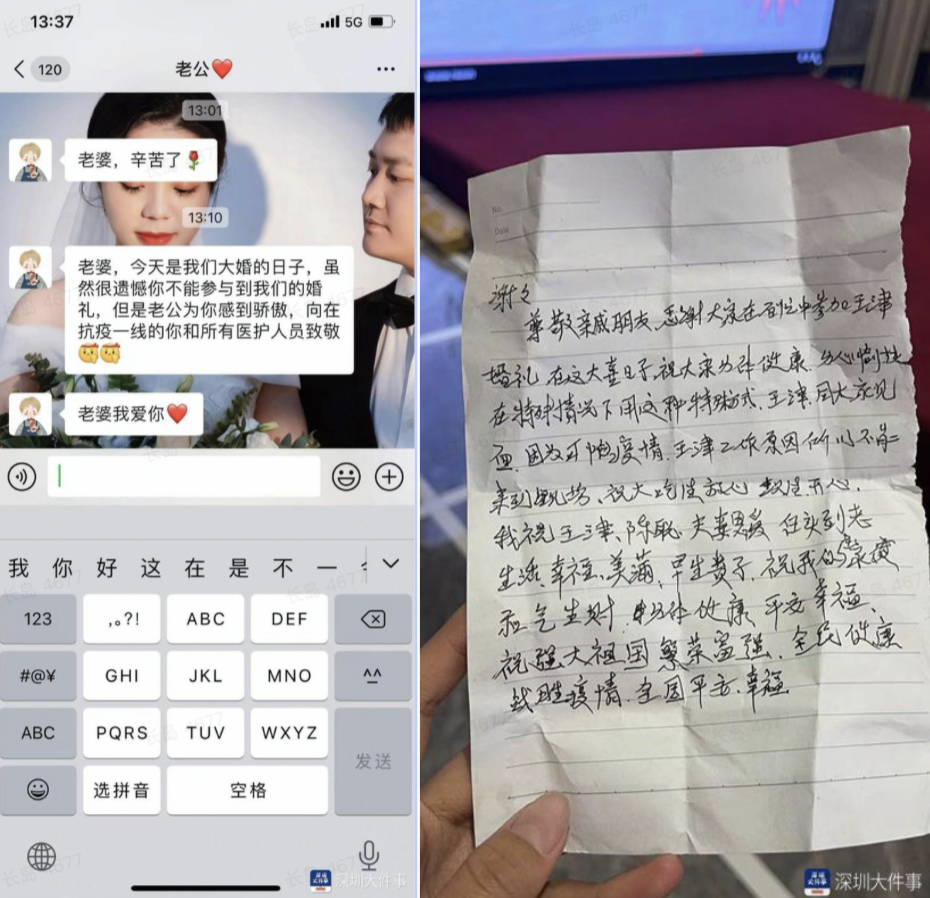 13:37
5G
120
老公❤️
13:01
老婆，辛苦了🌹
13:10
老婆，今天是我们大婚的日子，虽
然很遗憾你不能参与到我们的婚
礼，但是老公为你感到骄傲，向在
抗疫一线的你和所有医护人员致敬
老婆我爱你❤️
我 你 好 这 在 是 不 一
123
,。?!
ABC
DEF
#@¥
GHI
JKL
MNO
^^
ABC
PQRS
TUV
WXYZ
发送
选拼音
空格
深圳大件事
长岛 4677
No.
Date
谢
尊敬亲戚朋友，感谢大家在百忙中参加王津
婚礼，在这大喜日子，祝大家身体健康，
在特殊情况下用这种特殊方式，王津同大家见
面，因为疫情，王津工作原因，所以不能
来到现场，祝大吃
我祝王津、陈 夫妻恩爱 白头到老
生活、幸福、美满，早生贵子，祝我的
和气生财，身体健康 平安幸福、
祝强大祖国繁荣富强、全民健康
战胜疫情、全国平安、幸福
深圳大件事